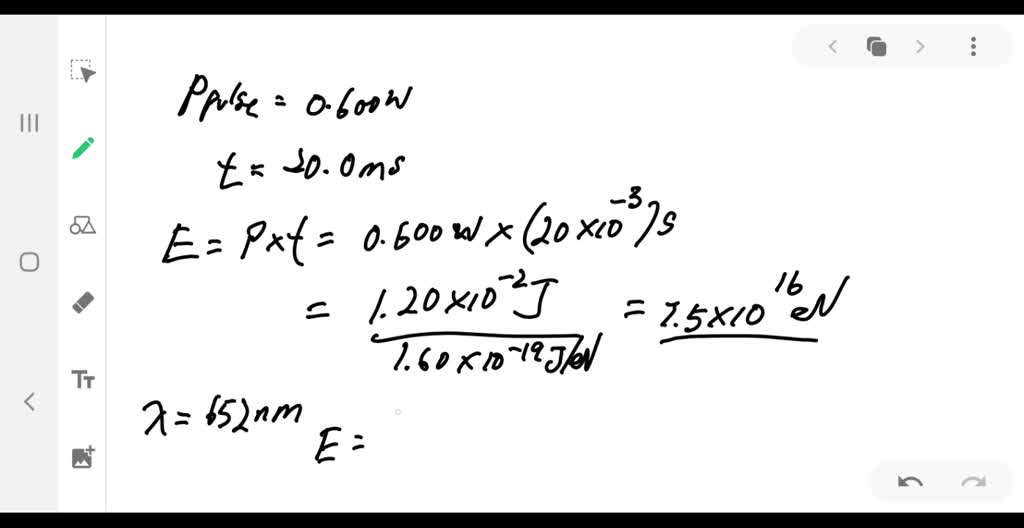 Ppulse = 0.600W
t = 20.0ms
E = P×t = 0.600W × (20×10^-3)s
= 1.20×10^-2 J / 1.60×10^-19 J/eV = 7.5×10^16 eV
λ = 652nm
E =
Tт